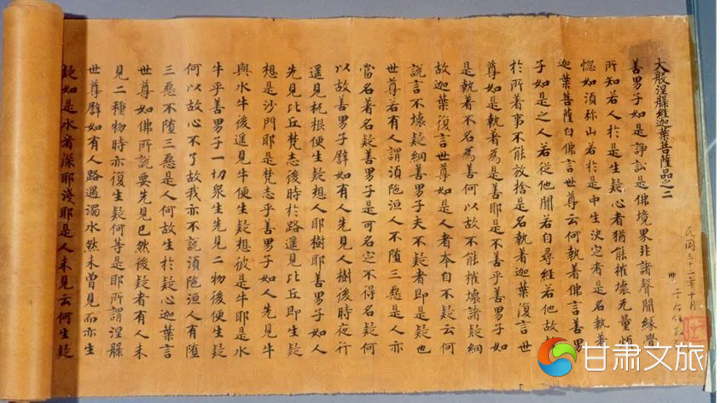 民國三十二年十月
大般涅槃經迦葉菩薩品之二
善男子如是諍訟是佛境界非諸聲聞緣覺
所知若人於是生疑心者猶能摧壞无量煩
惱如須弥山若於是中生決定者是名執著
迦葉菩薩白佛言世尊云何執著佛言善男
子如是之人若從他聞若自尋經若他故教
於所著事不能放捨是名執著迦葉復言世
尊如是執著為是善耶是不善乎善男子如
是執著不名為善何以故不能摧壞諸疑網
故迦葉復言世尊如是人者本自不疑云何
說言不壞疑網善男子夫不疑者即是疑也
世尊若有人謂須陁洹人不墮三惡是人亦
當名著名疑善男子是可名定不得名疑何
以故善男子譬如有人先見人樹後時夜行
遥見杌根便生疑想人耶樹耶善男子如人
先見比丘梵志後時於路遥見比丘即生疑
想是沙門耶是梵志乎善男子如人先見牛
與水牛後遥見牛便生疑想彼是牛耶是水
牛乎善男子一切衆生先見二物後便生疑
何以故心不了故我亦不說須陁洹人有墮
三惡不墮三惡是人何故生於疑心迦葉言
世尊如佛所說要先見已然後疑者有人未
見二種物時亦復生疑何等是耶所謂涅槃
世尊譬如有人路遇濁水然未曾見而亦生
疑如是水者深耶淺耶是人未見云何生疑
甘肃文旅